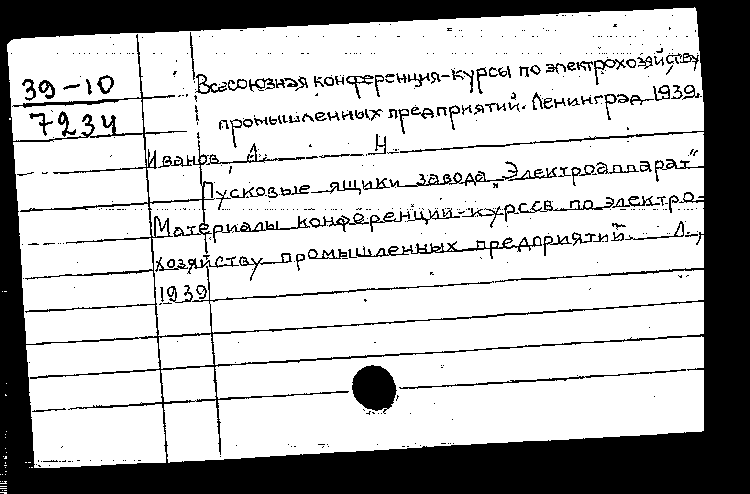 39-10
7234
Всесоюзная конференция-курсы по электрохозяйству
промышленных предприятий. Ленинград 1939.
Иванов, А. Н.
Пусковые ящики завода „Электроаппарат"
Материалы конференции-курсов по электро-
хозяйству промышленных предприятий. Л.,
1939